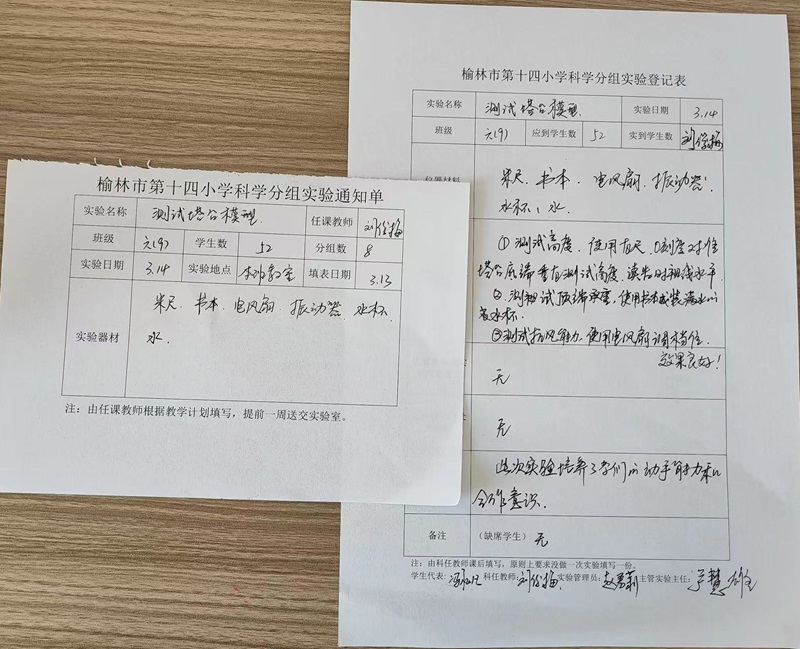 榆林市第十四小学科学分组实验通知单
实验名称 测试塔台模型 任课教师 刘俊梅
班级 六(9) 学生数 52 分组数 8
实验日期 3.14 实验地点 本班教室 填表日期 3.13
米尺、书本、电风扇、振动器、水杯、
实验器材
水.
注：由任课教师根据教学计划填写，提前一周送交实验室。
榆林市第十四小学科学分组实验登记表
实验名称 测试塔台模型. 实验日期 3.14
班级 六(9) 应到学生数 52 实到学生数 刘俊梅
仪器材料
米尺、书本、电风扇、振动器、
水杯、水.
①测试高度，使用直尺，0刻度对准
塔台底端垂直测试高度，读出时视线水平
②测试顶端承重，使用书本或装满水的
水杯.
③测试抗风能力，使用电风扇调档位.
效果良好!
无
无
此次实验培养了学们的动手能力和
合作意识.
备注 （缺席学生）无
注：由科任教师课后填写，原则上要求没做一次实验填写一份。
学生代表: 科任教师: 刘俊梅 实验管理员: 主管实验主任: